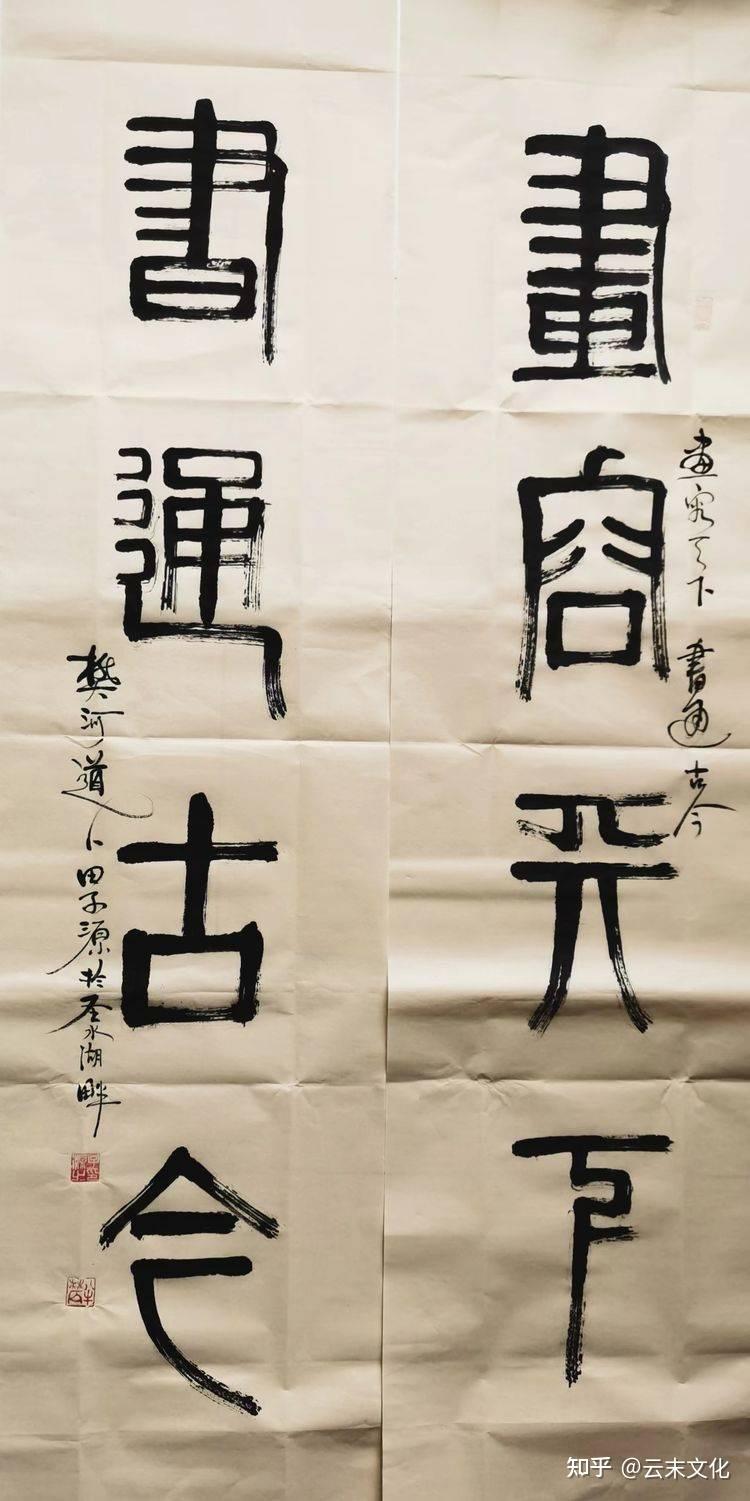 畫容天下
畫容天下 書通古今
書通古今
樊河道人田子源於圣水湖畔
知乎 @云末文化